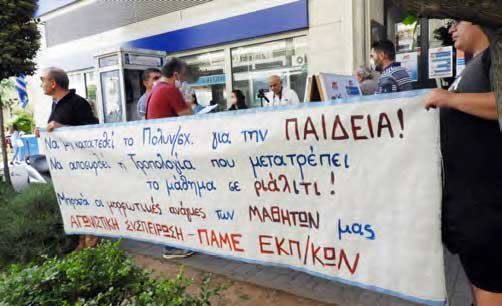 Να μη κατατεθεί το Πολυν/σχ. για την ΠΑΙΔΕΙΑ!
Να αποσυρθεί η Τροπολογία που μετατρέπει
το μάθημα σε ριάλιτι!
Μπροστά οι μορφωτικές ανάγκες των ΜΑΘΗΤΩΝ μας
ΑΓΩΝΙΣΤΙΚΗ ΣΥΣΠΕΙΡΩΣΗ - ΠΑΜΕ ΕΚΠ/ΚΩΝ